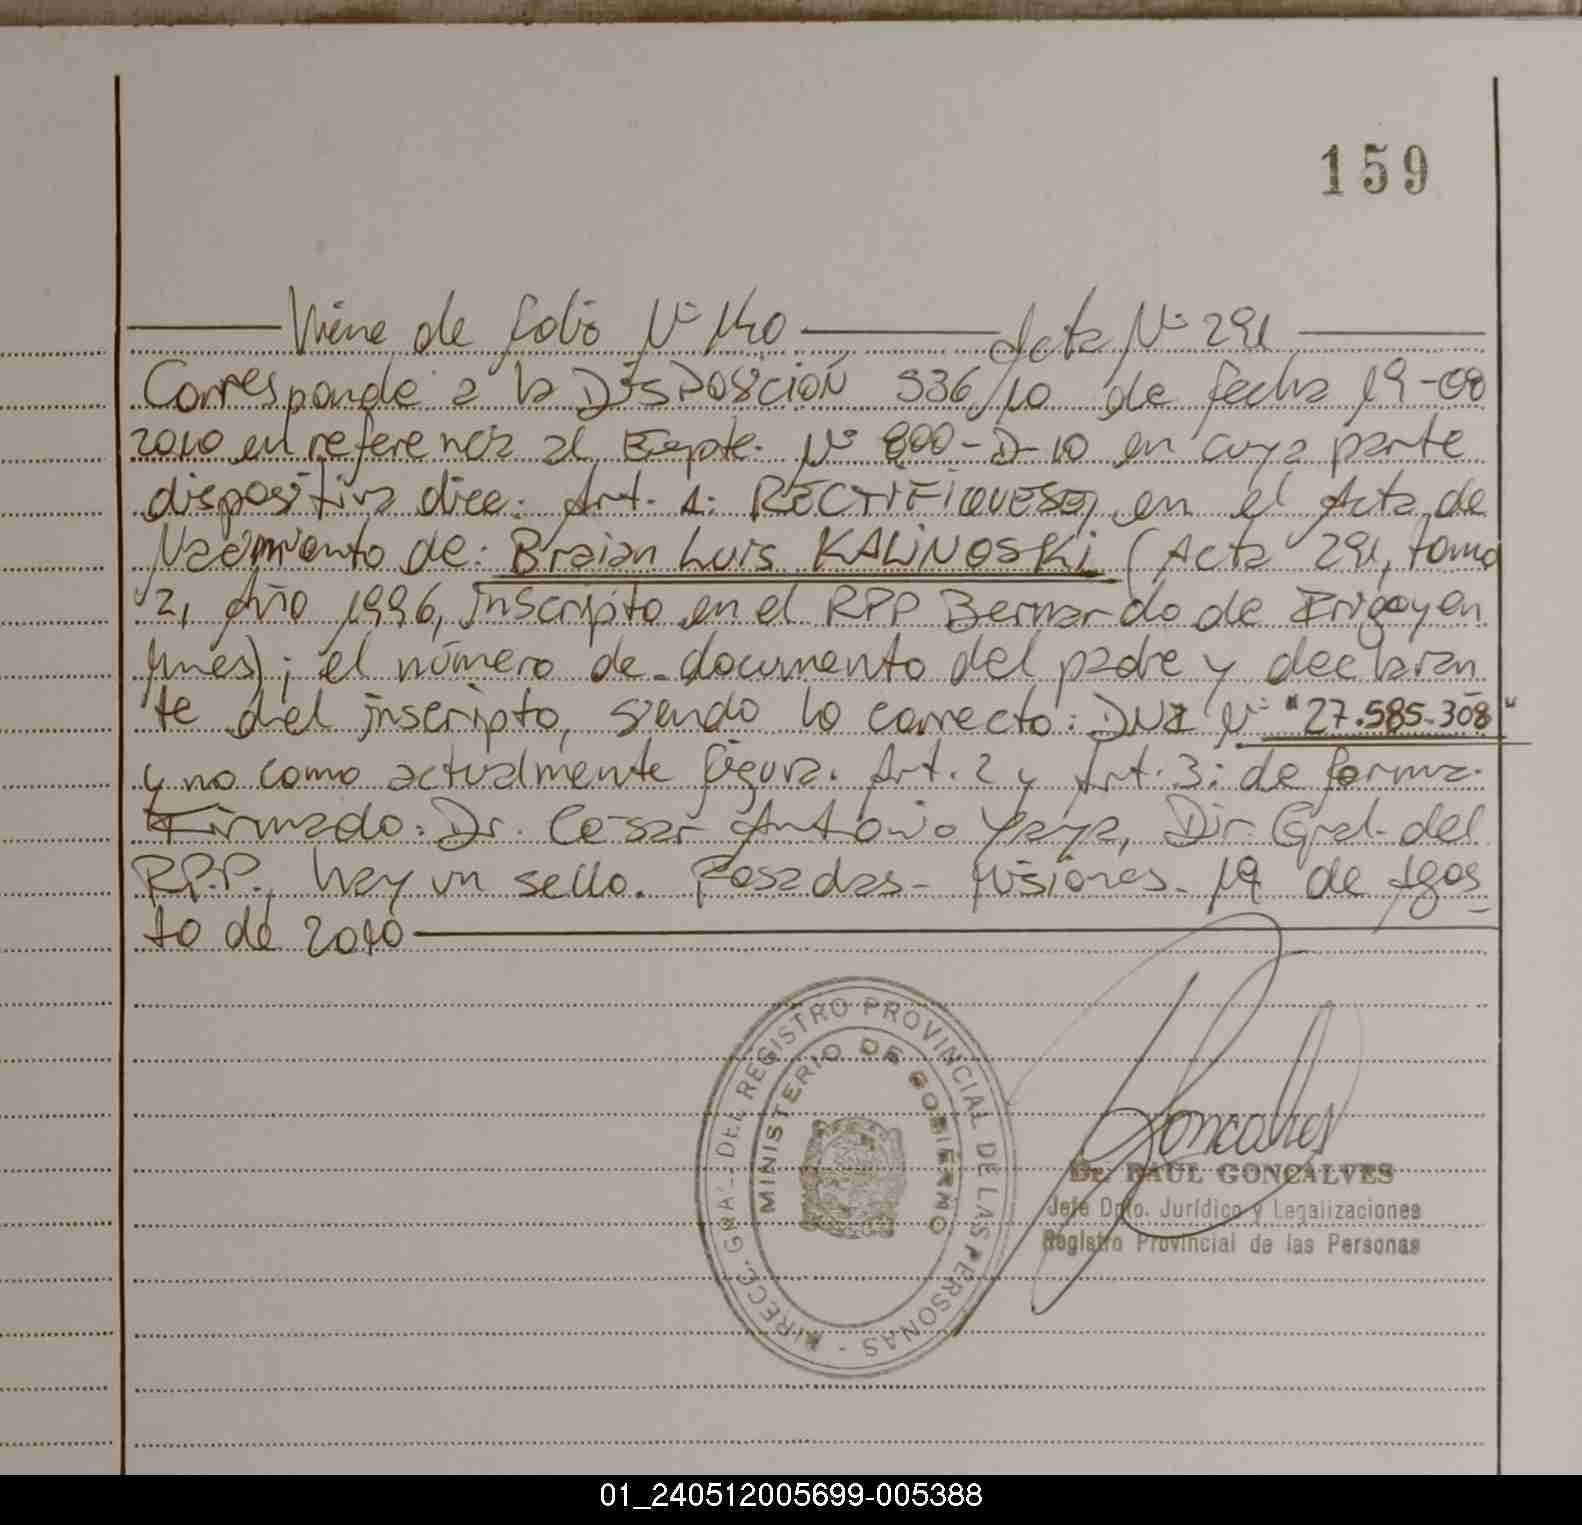 159
Viene de folio Nº 140 Acta Nº 291
Corresponde a la DISPOSICIÓN 936/10 de fecha 19-08
2010 en referencia al Expte. Nº 800-D-10 en cuya parte
dispositiva dice: Art. 1: RECTIFIQUESE, en el Acta de
Nacimiento de: Braian Luis KALINOSKI (Acta 291, tomo
2, Año 1996, inscripto en el RPP Bernardo de Irigoyen
Mnes); el número de documento del padre y declaran
te del inscripto, siendo lo correcto: DNI Nº "27.585.308"
y no como actualmente figura. Art. 2 y Art. 3: de forma.
Firmado: Dr. Cesar Antonio Yaya, Dir. Gral. del
R.P.P., hay un sello. Posadas - Misiones. 19 de Agos
to de 2010
DIRECC. GRAL. DEL REGISTRO PROVINCIAL DE LAS PERSONAS -
MINISTERIO DE GOBIERNO
Goncalves
Dr. RAUL GONCALVES
Jefe Dpto. Jurídico y Legalizaciones
Registro Provincial de las Personas
01_240512005699-005388